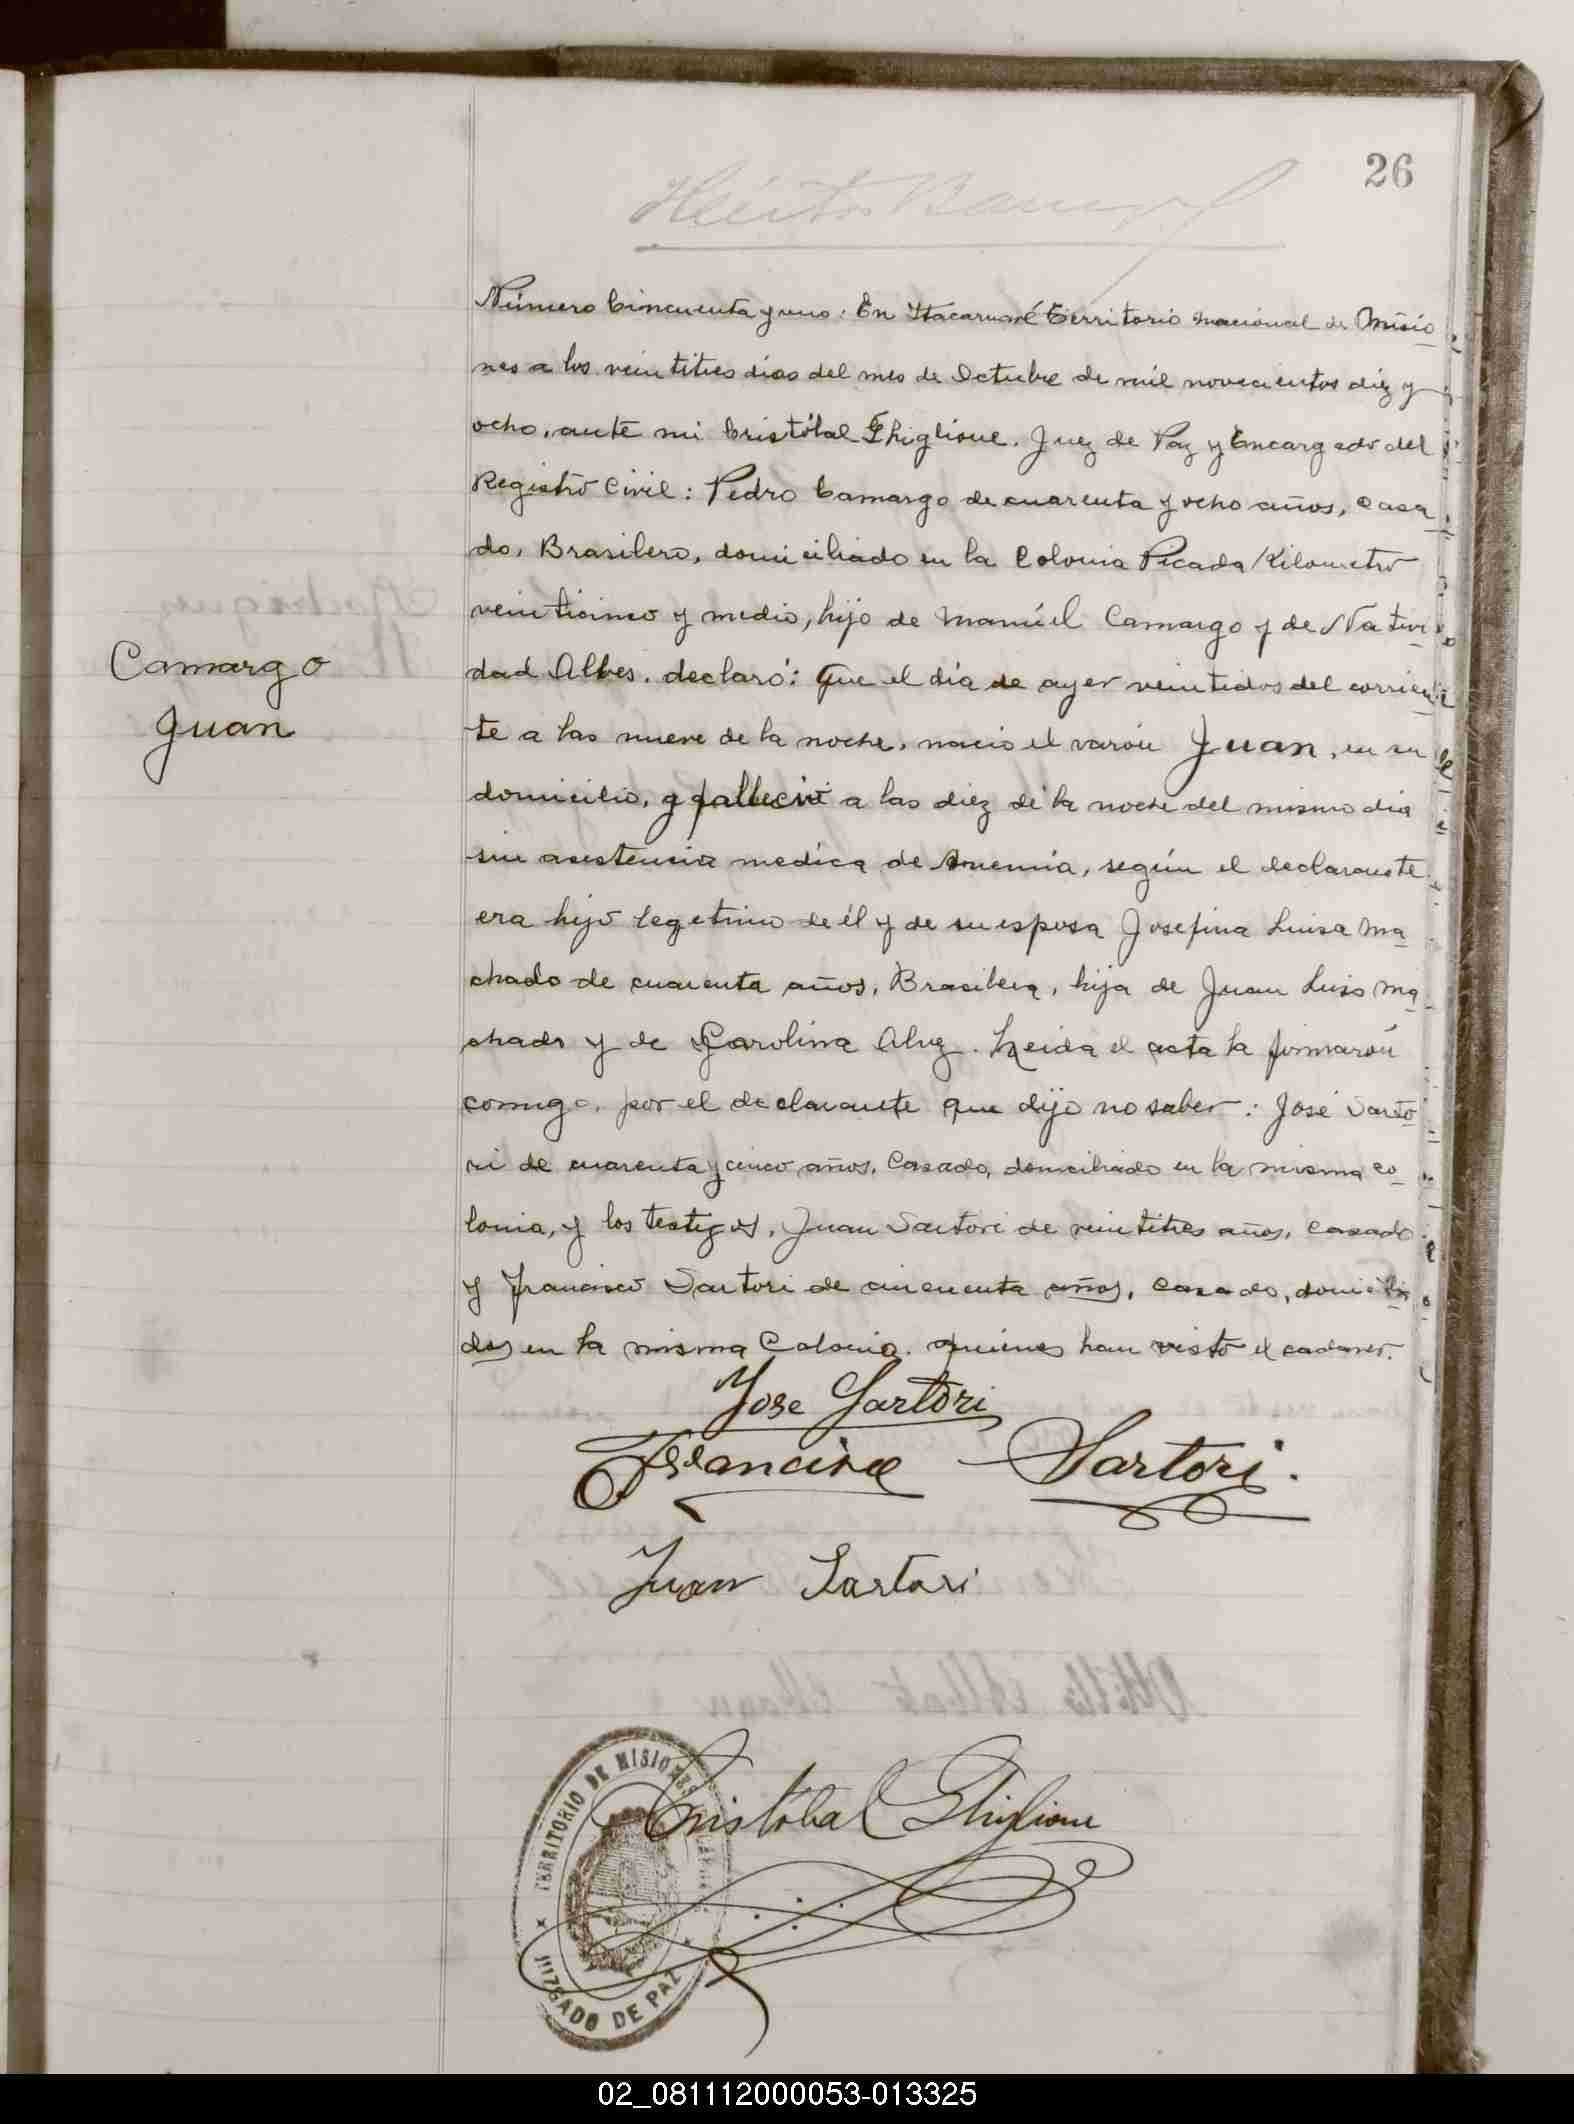 26
Héctor
Número Cincuenta y uno: En Itacaruaré Territorio nacional de Misio
nes a los veintitres dias del mes de Octubre de mil novecientos diez y
ocho, ante mi Cristóbal Ghiglione. Juez de Paz y Encargado del
Registro Civil: Pedro Camargo de cuarenta y ocho años, casa
do, Brasilero, domiciliado en la Colonia Picada Kilometro
veinticinco y medio, hijo de Manúel Camargo y de Nativi
dad Albes. declaró: Que el día de ayer veintidos del corrien
te a las nueve de la noche, nació el varón Juan, en su
domicilio, y falleció a las diez de la noche del mismo dia
sin asestencia medica de Anemia, según el declarante
era hijo legetimo de él y de su esposa Josefina Luisa Ma
chado de cuarenta años, Brasilera, hija de Juan Luis Ma
chado y de Carolina Alvez. Leida el acta la firmarón
comigo, por el declarante que dijo no saber: José Sarto
ri de cuarenta y cinco años, Casado, domiciliado en la misma co
lonia, y los testigos, Juan Sartori de veintitres años, casado
y Francisco Sartori de cincuenta años, casado, domicilia
dos en la misma Colonia. quienes han visto el cadaver.
Camargo
Juan
Jose Sartori
Francisco Sartori.
Juan Sartori
Cristóbal Ghiglione
TERRITORIO DE MISIONES
JUZGADO DE PAZ
02_081112000053-013325